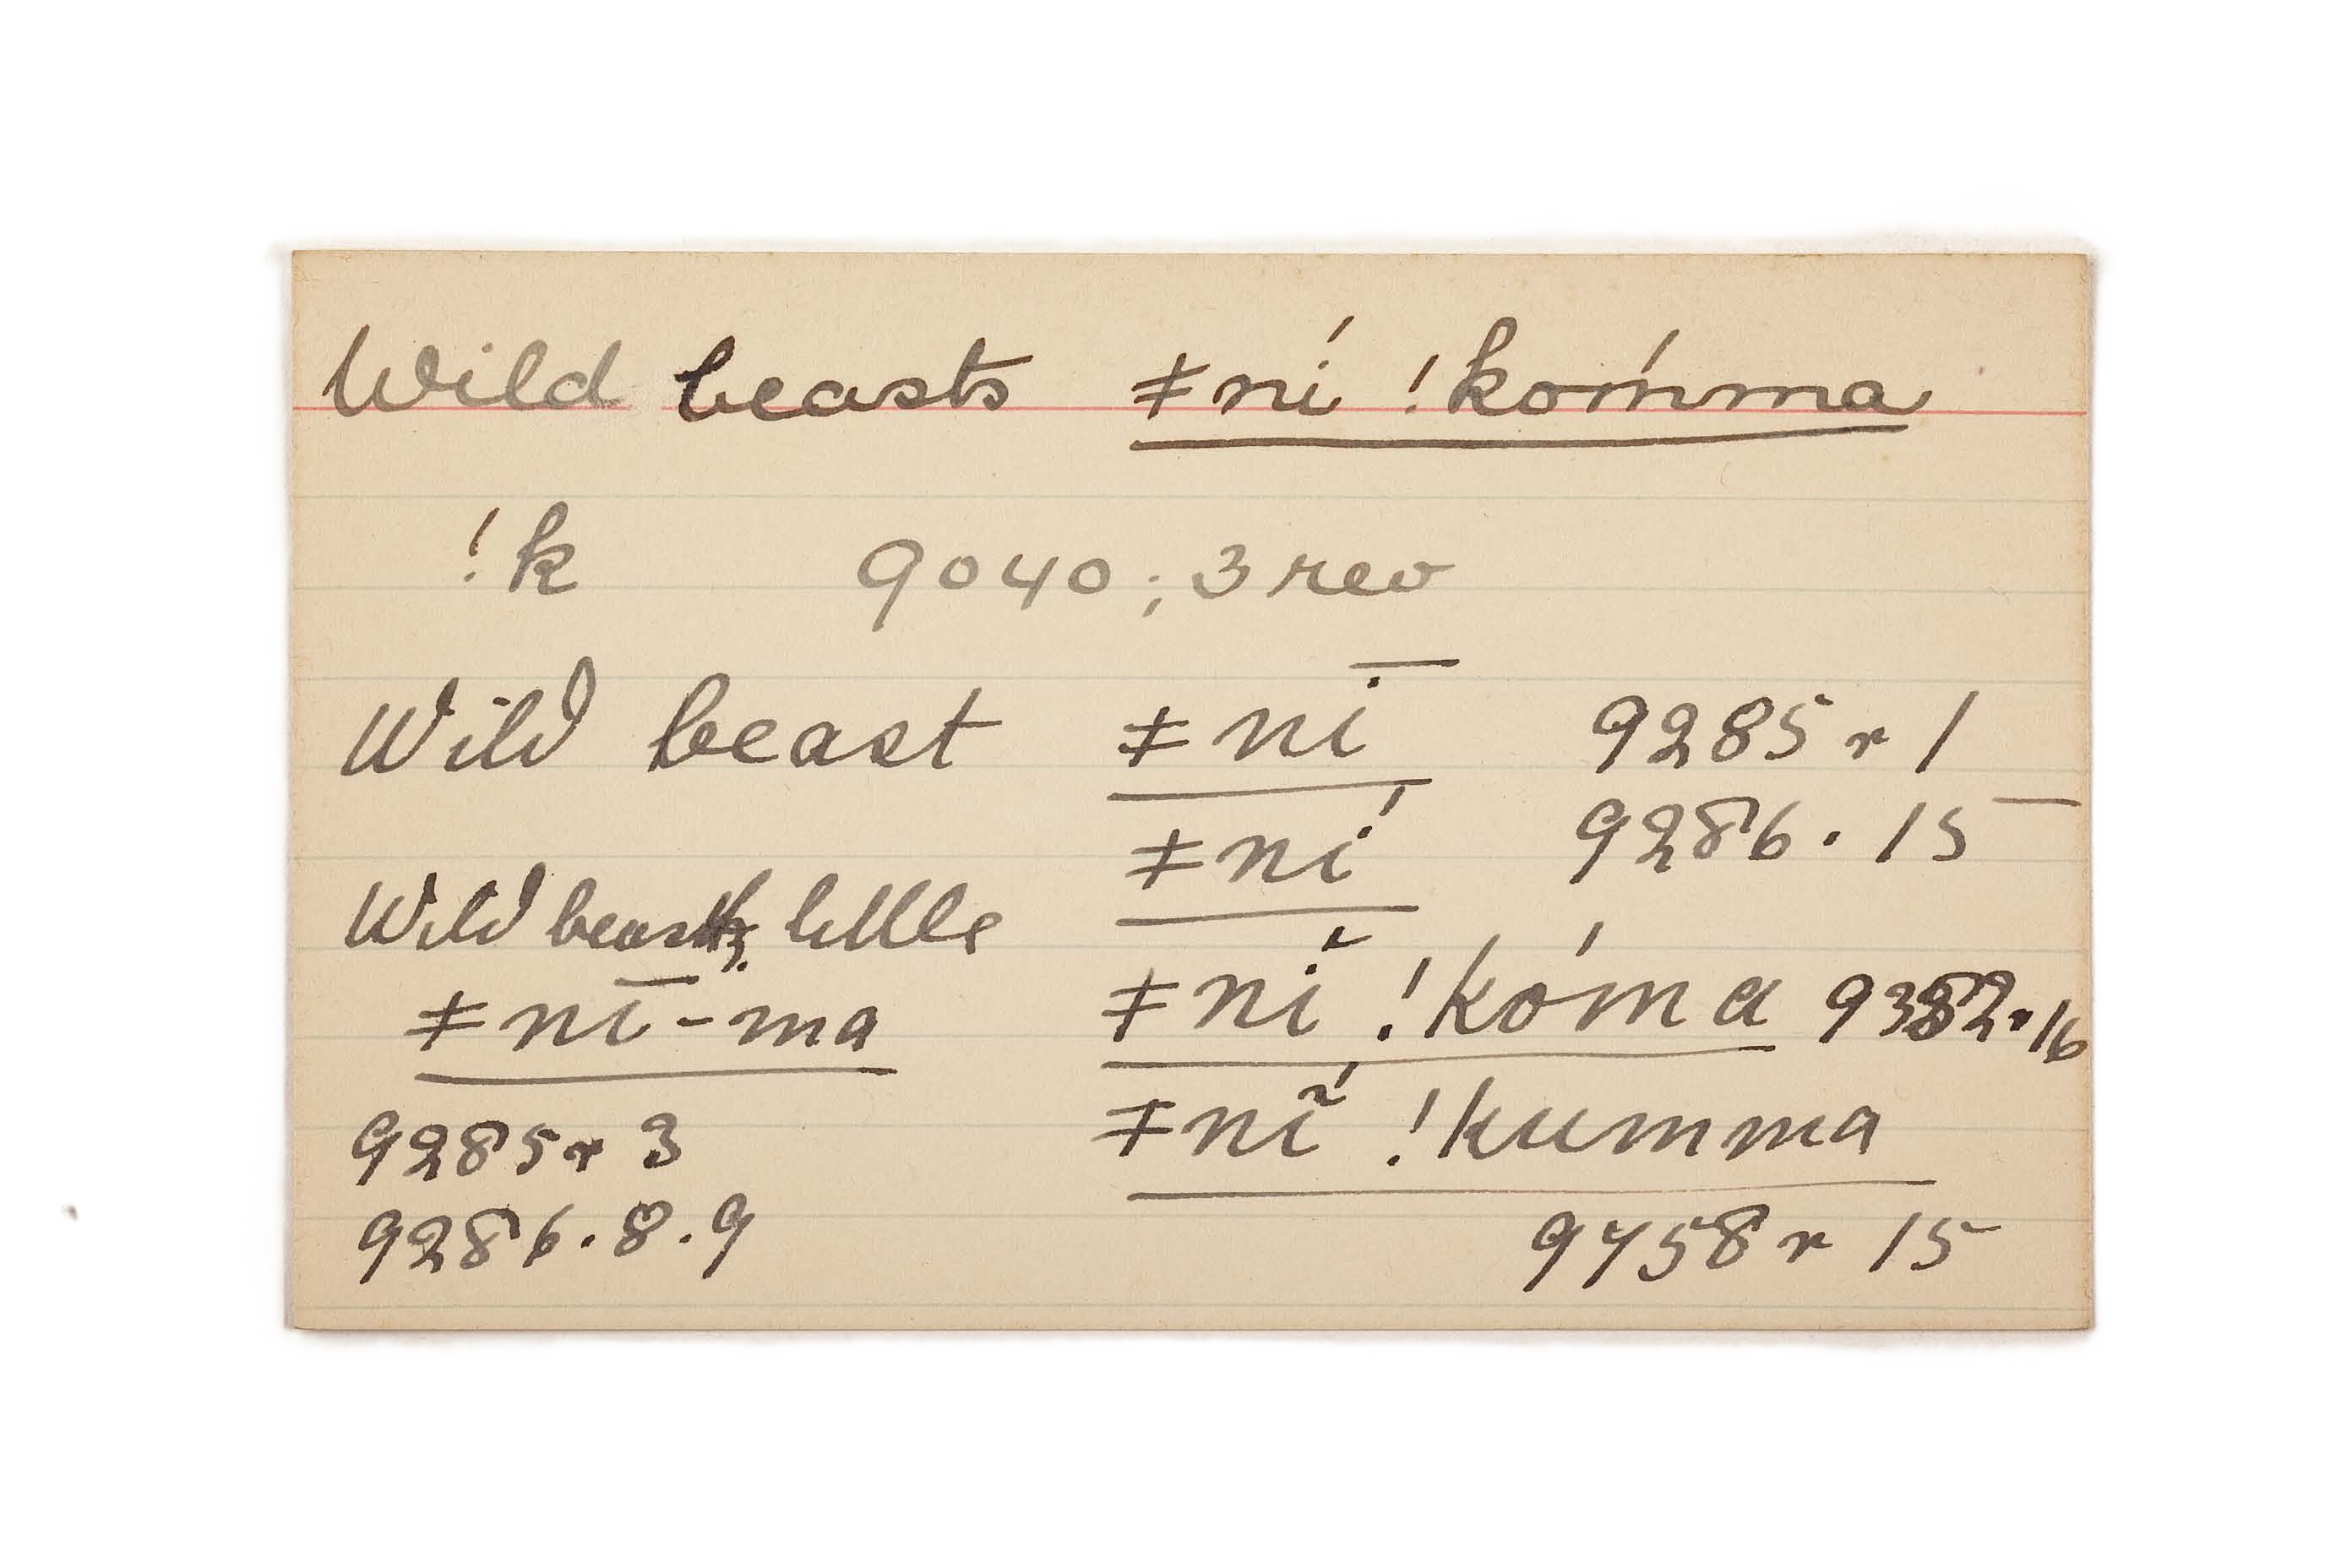 Wild beasts ǂní !kómma
!k 9040; 3 rev
Wild beast ǂnī 9285 r 1
ǂní 9286. 15
Wild beast, little
ǂnī-ma
9285 r 3
9286. 8. 9
ǂnĭ !kóma .16
ǂnĩ́ !kumma
9458 r 15